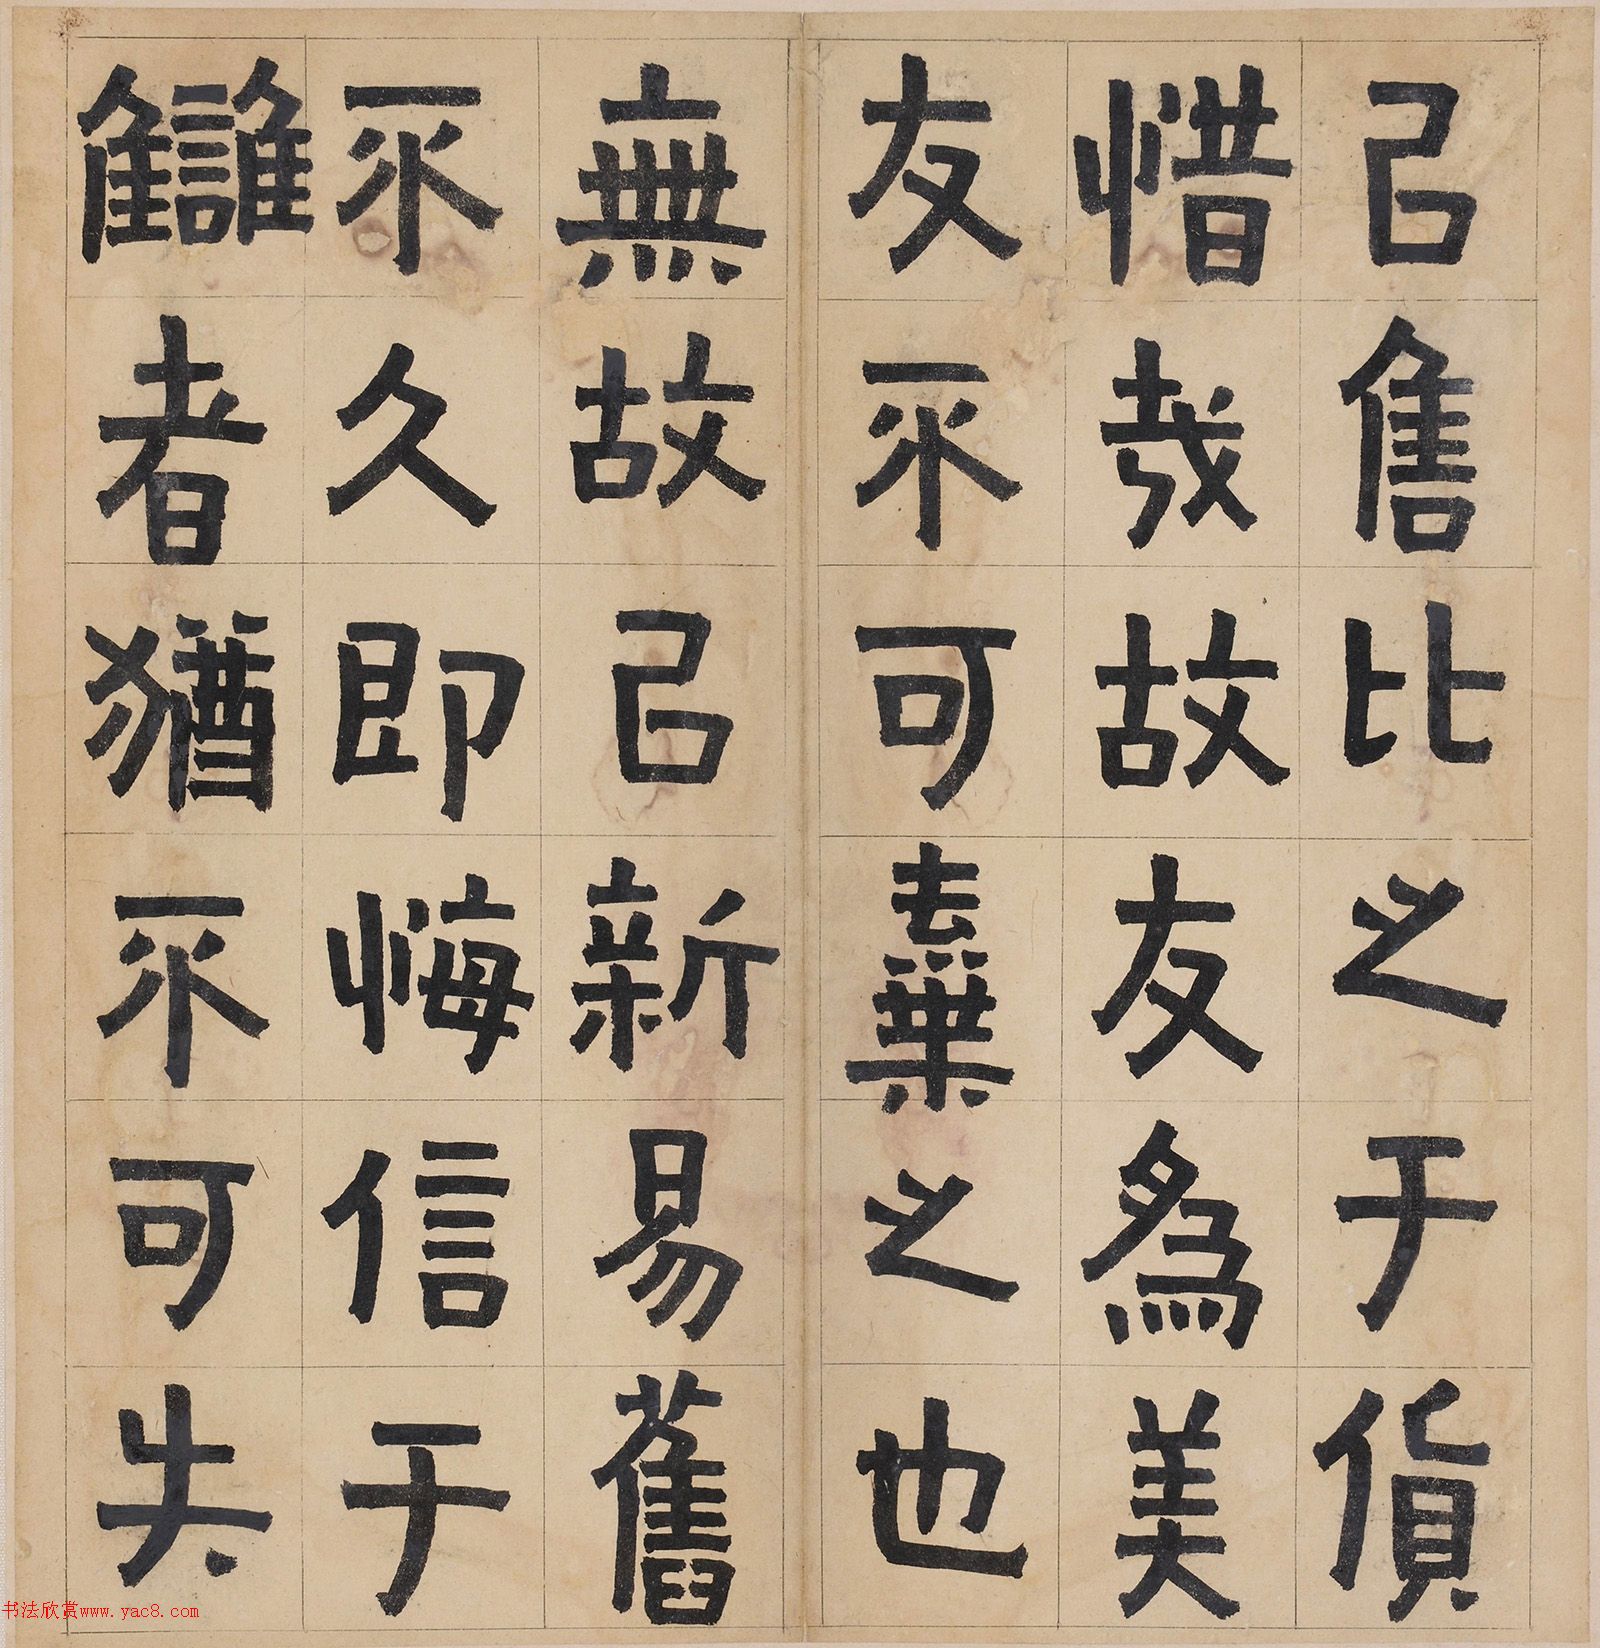 已售比之于貨
惜哉故友為美
友不可棄之也
無故已新易舊
不久即悔信于
讎者猶不可失
书法欣赏www.yac8.com